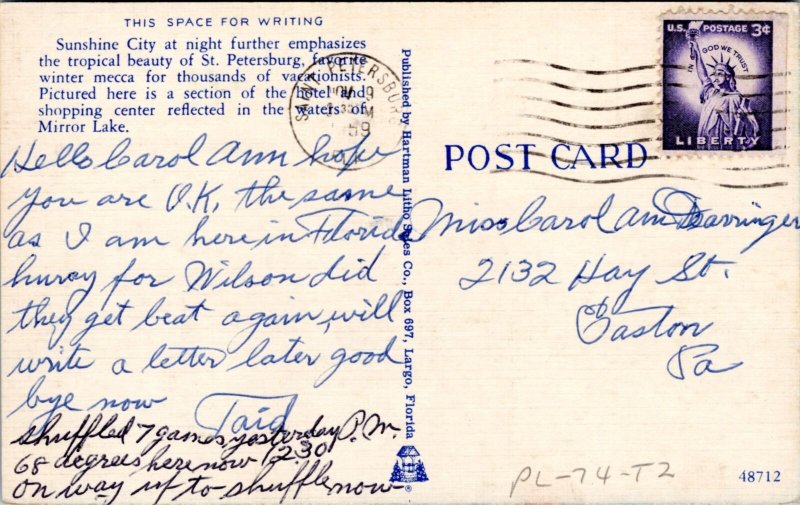 THIS SPACE FOR WRITING
Sunshine City at night further emphasizes
the tropical beauty of St. Petersburg, favorite
winter mecca for thousands of vacationists.
Pictured here is a section of the hotel and
shopping center reflected in the waters of
Mirror Lake.
Hello Carol Ann hope
you are O.K. the same
as I am here in Florida
huray for Wilson did
they get beat again, will
write a letter later good
bye now Taid
shuffled 7 games yesterday P.M.
68 degrees here now 12:30
on way up to shuffle now
Published by Hartman Litho Sales Co., Box 697, Largo, Florida
SAINT PETERSBURG
59
U.S. POSTAGE 3¢
IN GOD WE TRUST
LIBERTY
POST CARD
Miss Carol Ann Darringer
2132 Hay St.
Easton
Pa
PL-74-T2
48712